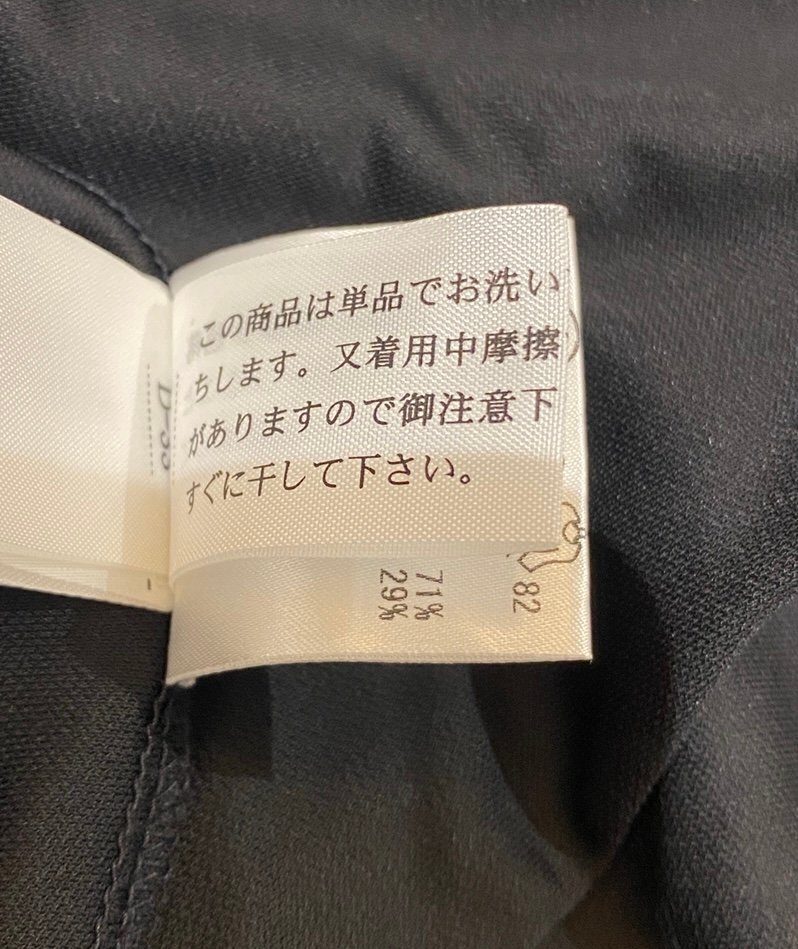 この商品は単品でお洗い
ちします。又着用中摩擦
がありますので御注意下
すぐに干して下さい。
82
71%
29%